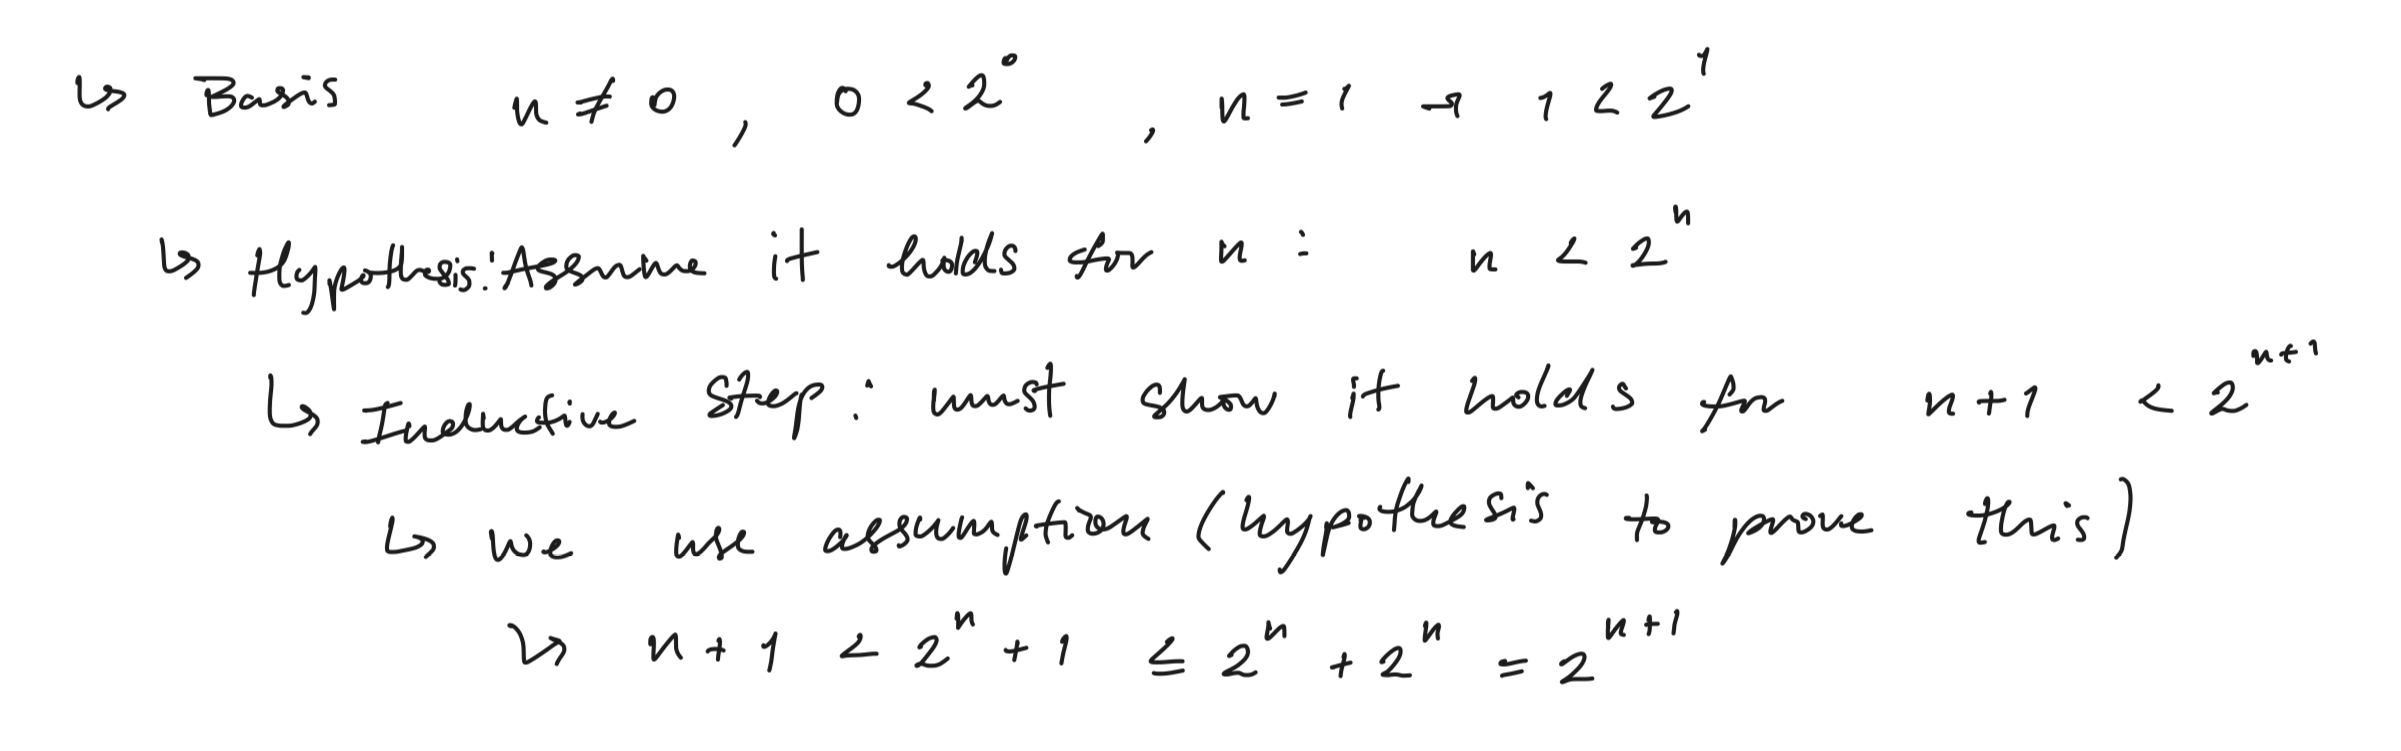 ↳ Basis n ≠ 0, 0 < 2⁰, n = 1 → 1 < 2¹
↳ Hypothesis: Assume it holds for n : n < 2ⁿ
↳ Inductive step: must show it holds for n+1 < 2ⁿ⁺¹
↳ we use assumption (hypothesis to prove this)
↳ n+1 < 2ⁿ + 1 ≤ 2ⁿ + 2ⁿ = 2ⁿ⁺¹